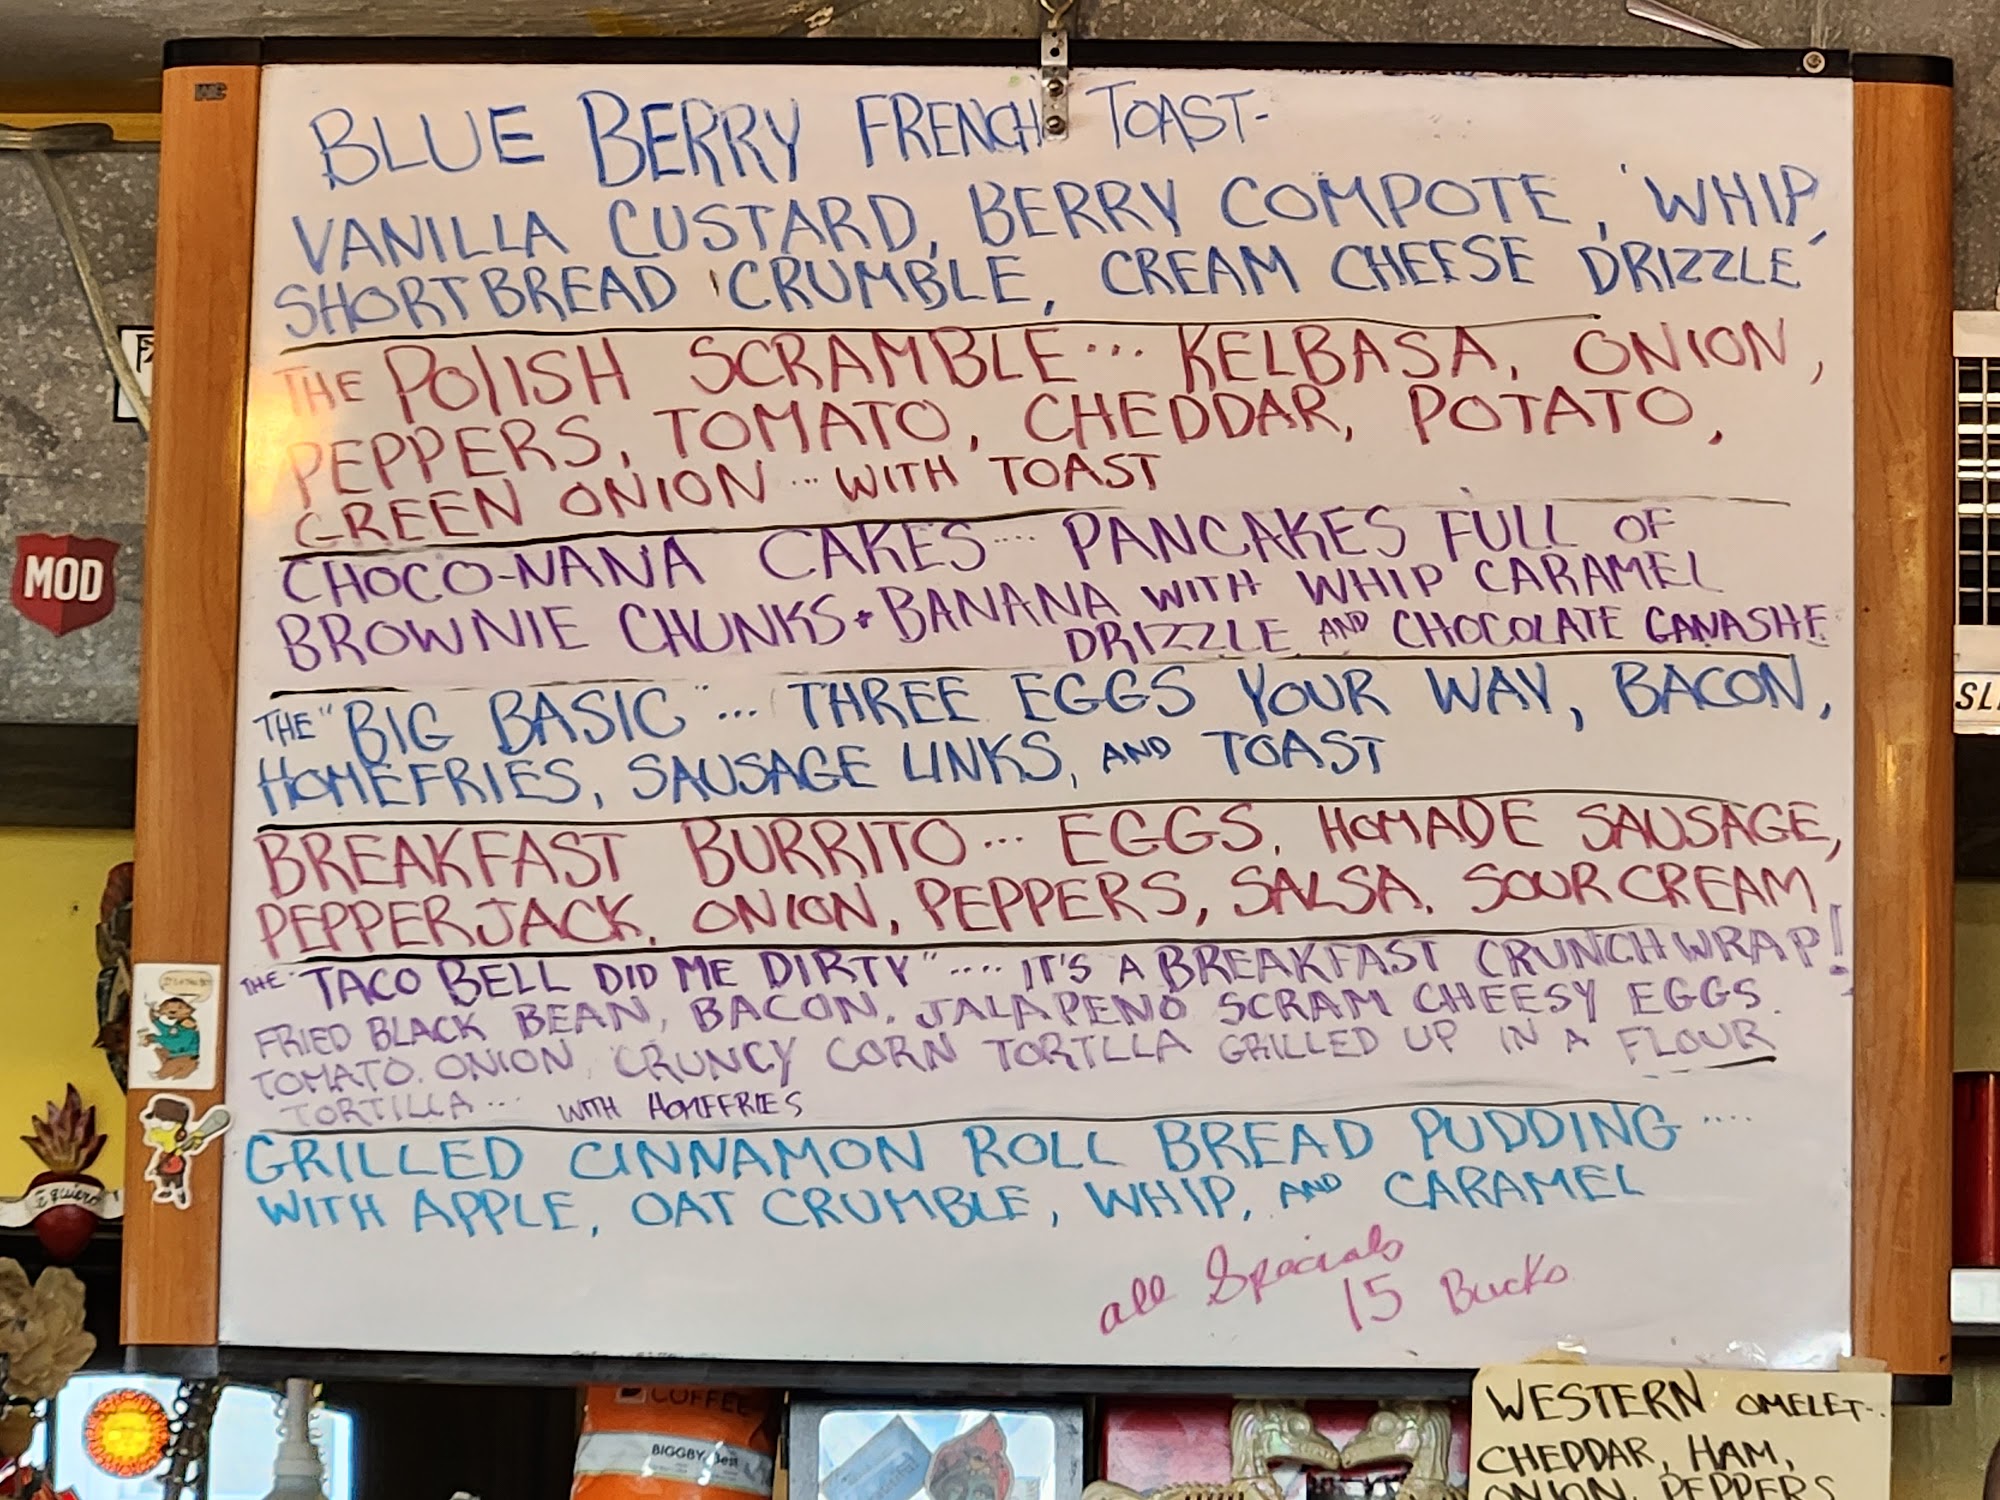 BLUE BERRY FRENCH TOAST-
VANILLA CUSTARD, BERRY COMPOTE, WHIP,
SHORTBREAD CRUMBLE, CREAM CHEESE DRIZZLE
THE POlISH SCRAMBLE... KELBASA, ONION,
PEPPERS, TOMATO, CHEDDAR, POTATO,
GREEN ONION ... WITH TOAST
CHOCO-NANA CAKES.... PANCAKES FULL OF
BROWNIE CHUNKS + BANANA WITH WHIP CARAMEL
DRIZZLE AND CHOCOLATE GANASHE
THE "BIG BASIC" ... THREE EGGS YOUR WAY, BACON,
HOMEFRIES, SAUSAGE LINKS, AND TOAST
BREAKFAST BURRITO... EGGS, HOMADE SAUSAGE,
PEPPERJACK, ONION, PEPPERS, SALSA, SOUR CREAM
THE "TACO BELL DID ME DIRTY".... IT'S A BREAKFAST CRUNCHWRAP!
FRIED BLACK BEAN, BACON, JALAPENO SCRAM CHEESY EGGS.
TOMATO, ONION, CRUNCY CORN TORTLLA GRILLED UP IN A FLOUR
TORTILLA... WITH HOMEFRIES
GRILLED CINNAMON ROLL BREAD PUDDING ....
WITH APPLE, OAT CRUMBLE, WHIP, AND CARAMEL
all Specials
15 Bucks
MOD
COFFEE
BIGGBY Best
WESTERN OMELET..
CHEDDAR, HAM,
ONION, PEPPERS